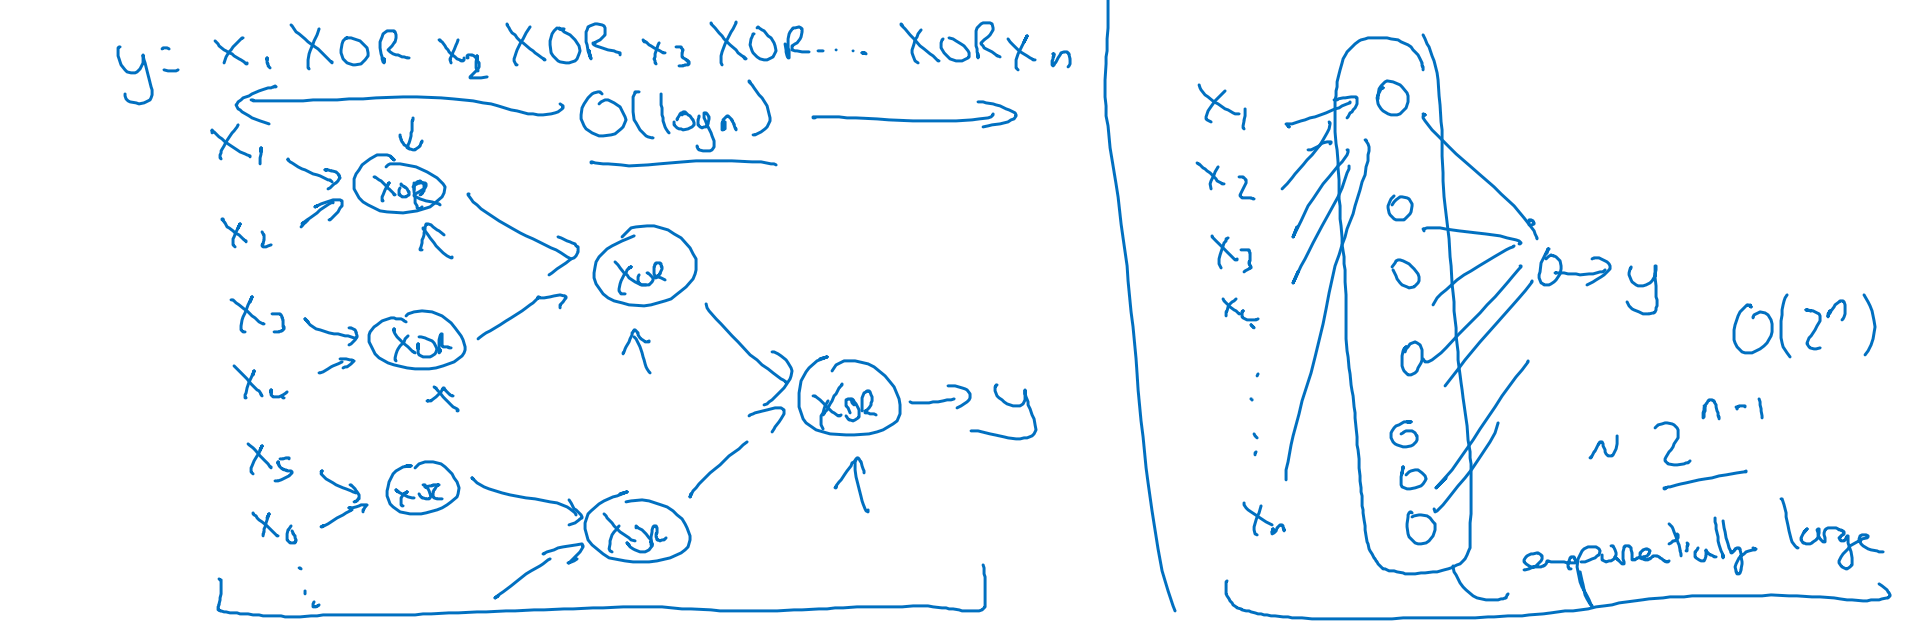 y = x₁ XOR x₂ XOR x₃ XOR.... XOR xₙ
O(log n)
x₁
XOR
x₂
XOR
x₃
XOR
x₄
XOR
y
x₅
XOR
x₆
XOR
x₁
x₂
x₃
x₄
xₙ
y
O(2ⁿ)
~ 2ⁿ⁻¹
exponentially large